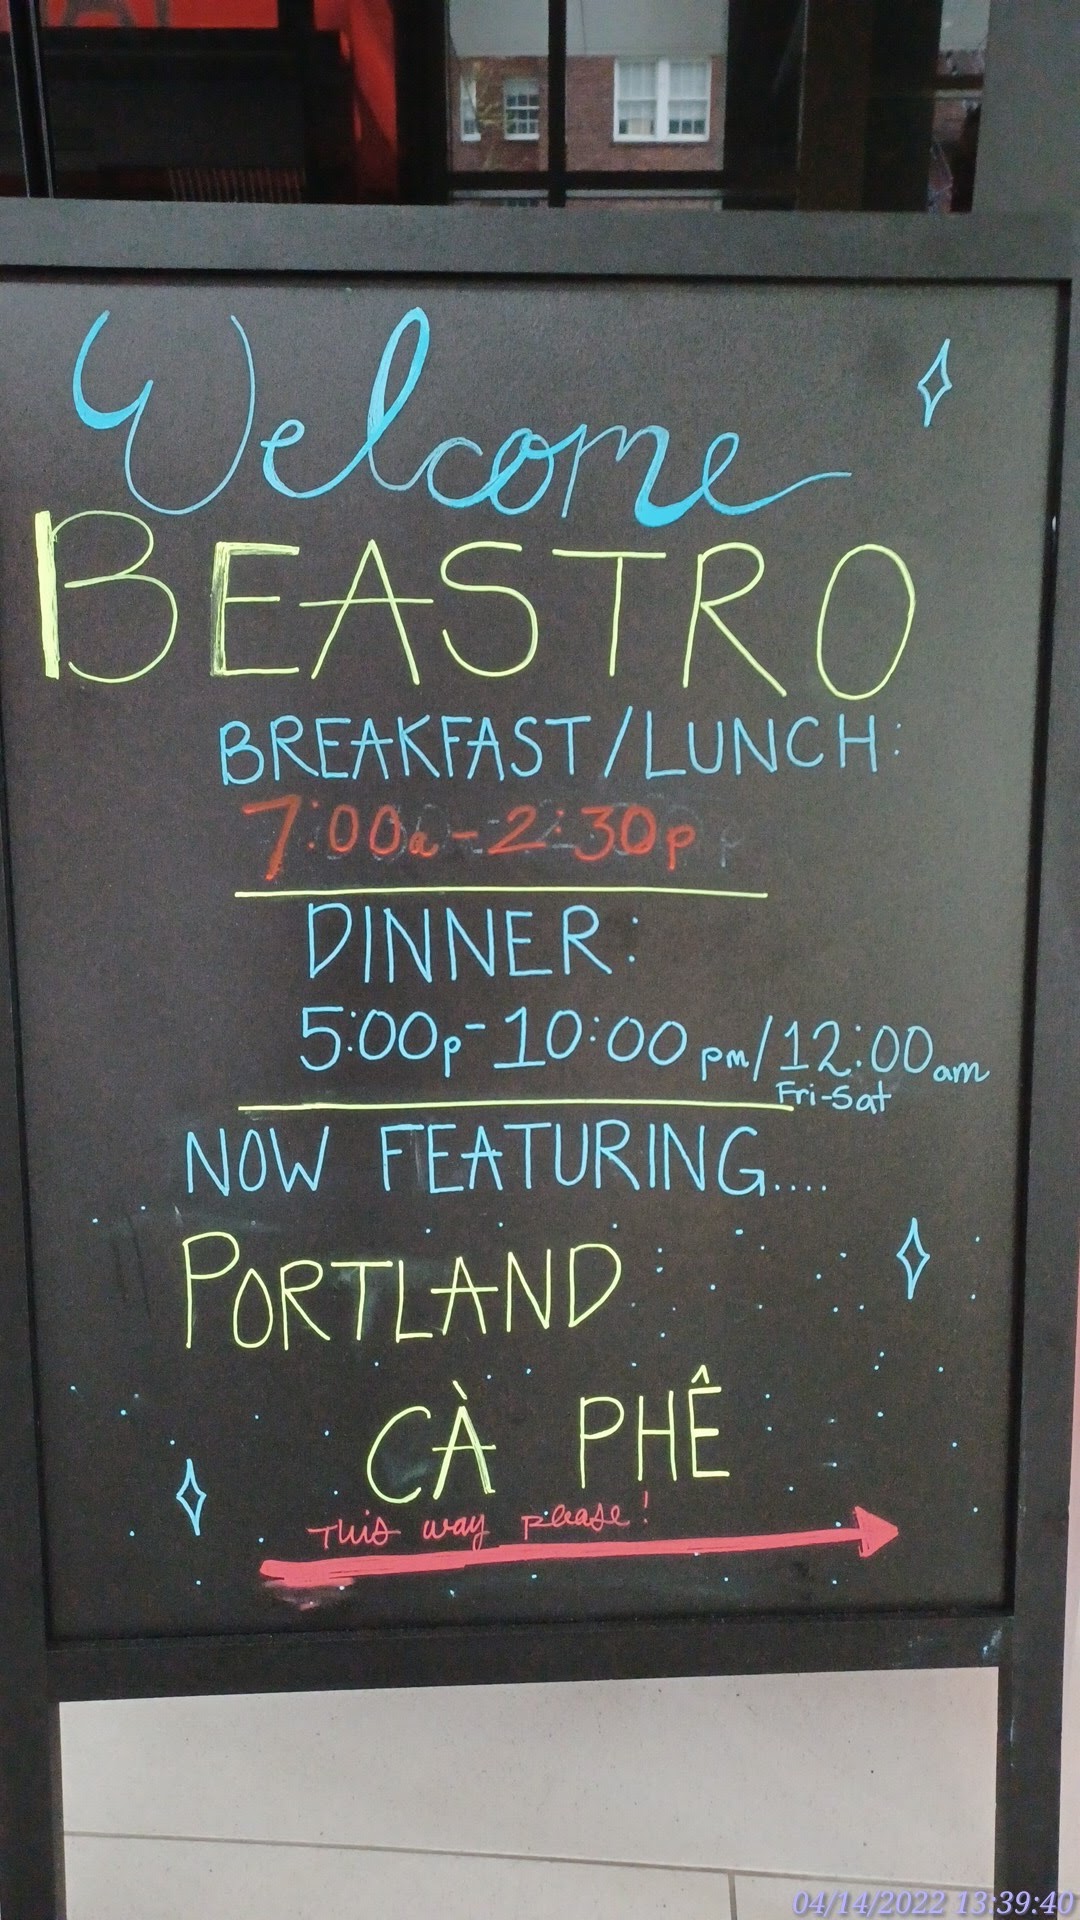 Welcome
BEASTRO
BREAKFAST/LUNCH:
7:00a-2:30p
DINNER:
5:00p-10:00pm/12:00am
Fri-Sat
NOW FEATURING....
PORTLAND
CÀ PHÊ
This way please!
04/14/2022 13:39:40